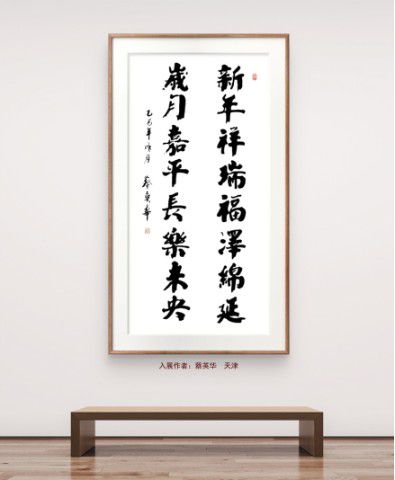 新年祥瑞福澤綿延
歲月嘉平長樂未央
乙巳年 月 蔡英華
入展作者：蔡英华　天津